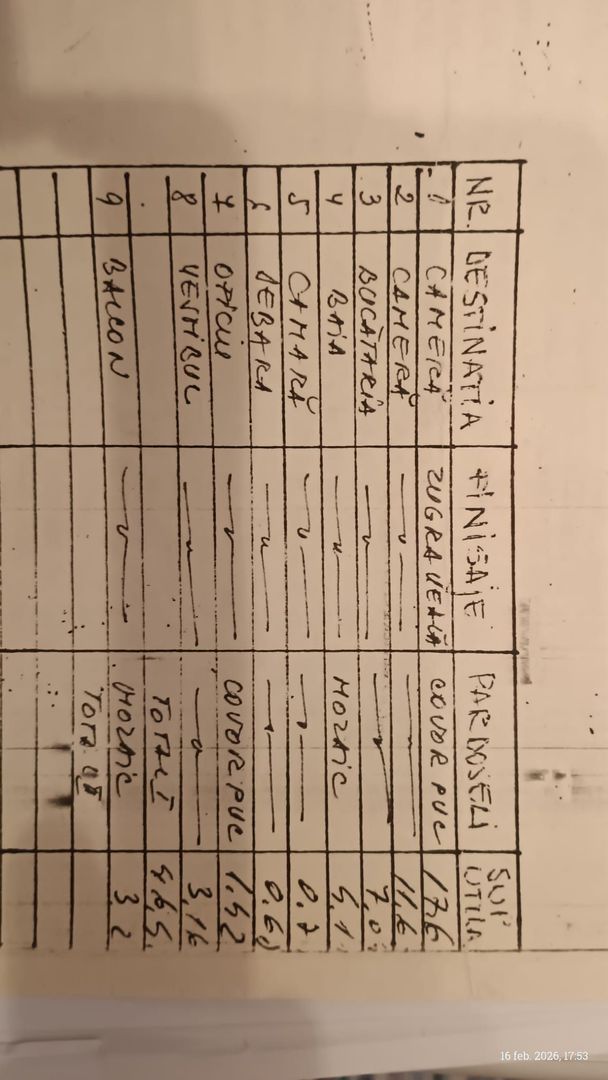 NR. DESTINATIA FINISAJE PARDOSELI SUP UTILA
1 CAMERĂ ZUGRAVEALĂ COVOR PVC 17.6
2 CAMERĂ —"— —"— 11.6
3 BUCĂTARIA —"— —"— 7.0
4 BAIA —"— MOZAIC
5 CAMARĂ —"— —"— 0.7
6 DEBARA —"— —"— 0.6
7 OFICIU —"— COVOR PVC 1.52
8 VESTIBUL —"— —"— 3.16
TOTAL I
9 BALCON —"— MOZAIC 3.2
TOTAL II
16 feb. 2026, 17:53